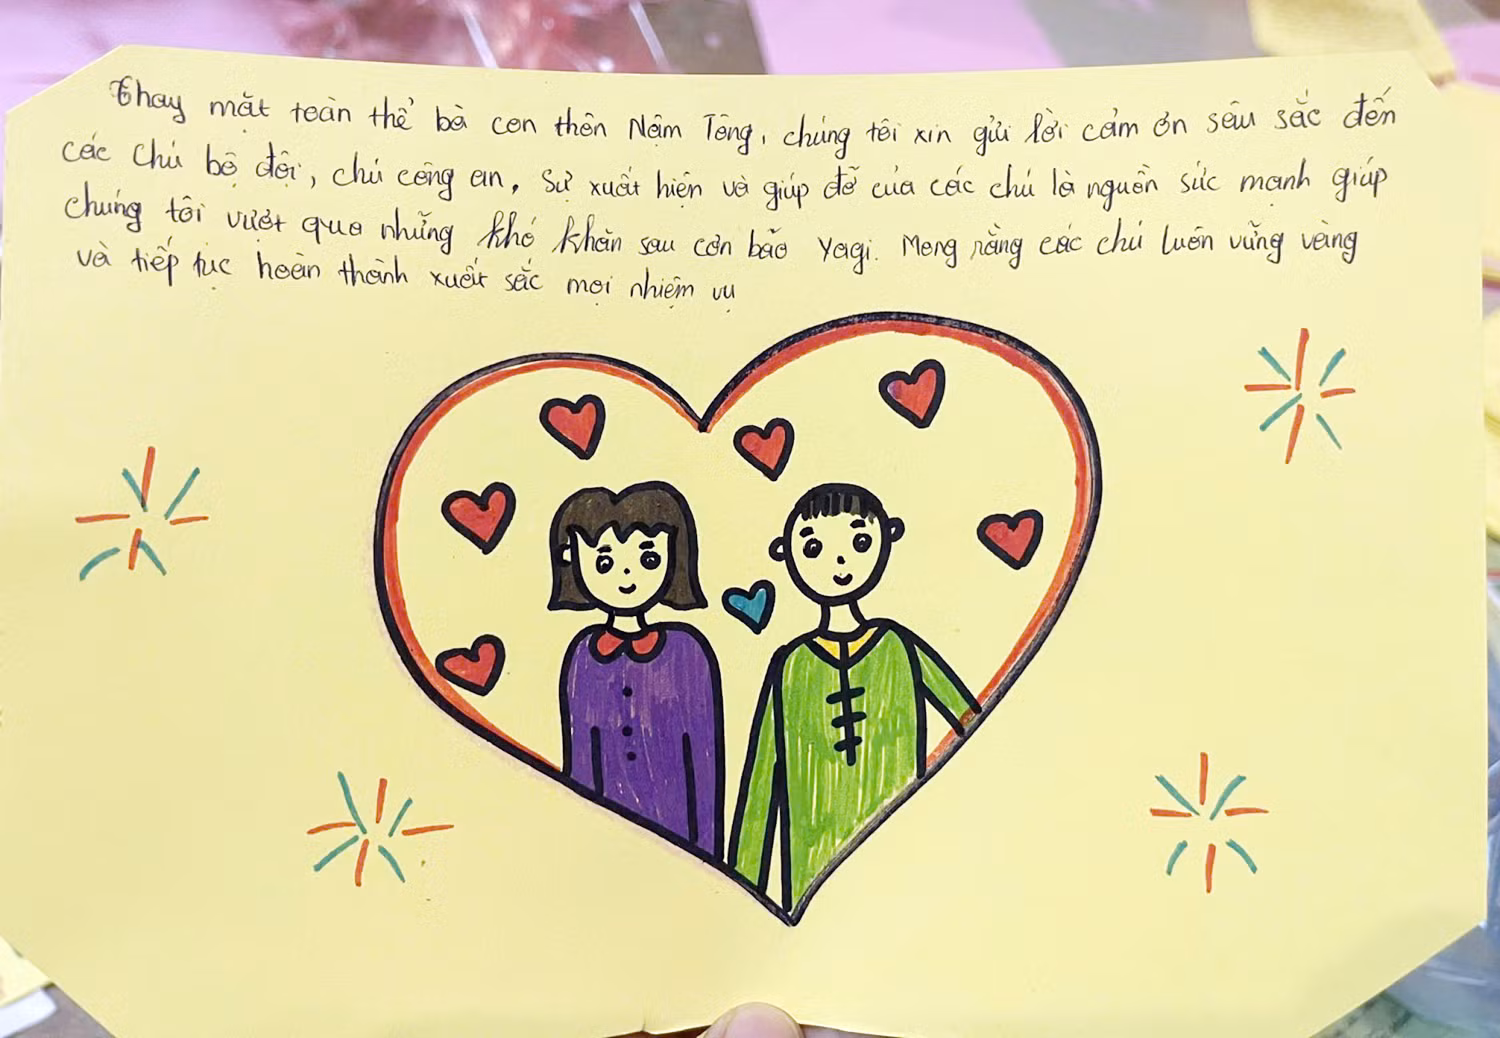 Thay mặt toàn thể bà con thôn Nậm Tông, chúng tôi xin gửi lời cảm ơn sâu sắc đến
các chú bộ đội, chú công an, sự xuất hiện và giúp đỡ của các chú là nguồn sức mạnh giúp
chúng tôi vượt qua những khó khăn sau cơn bão Yagi. Mong rằng các chú luôn vững vàng
và tiếp tục hoàn thành xuất sắc mọi nhiệm vụ